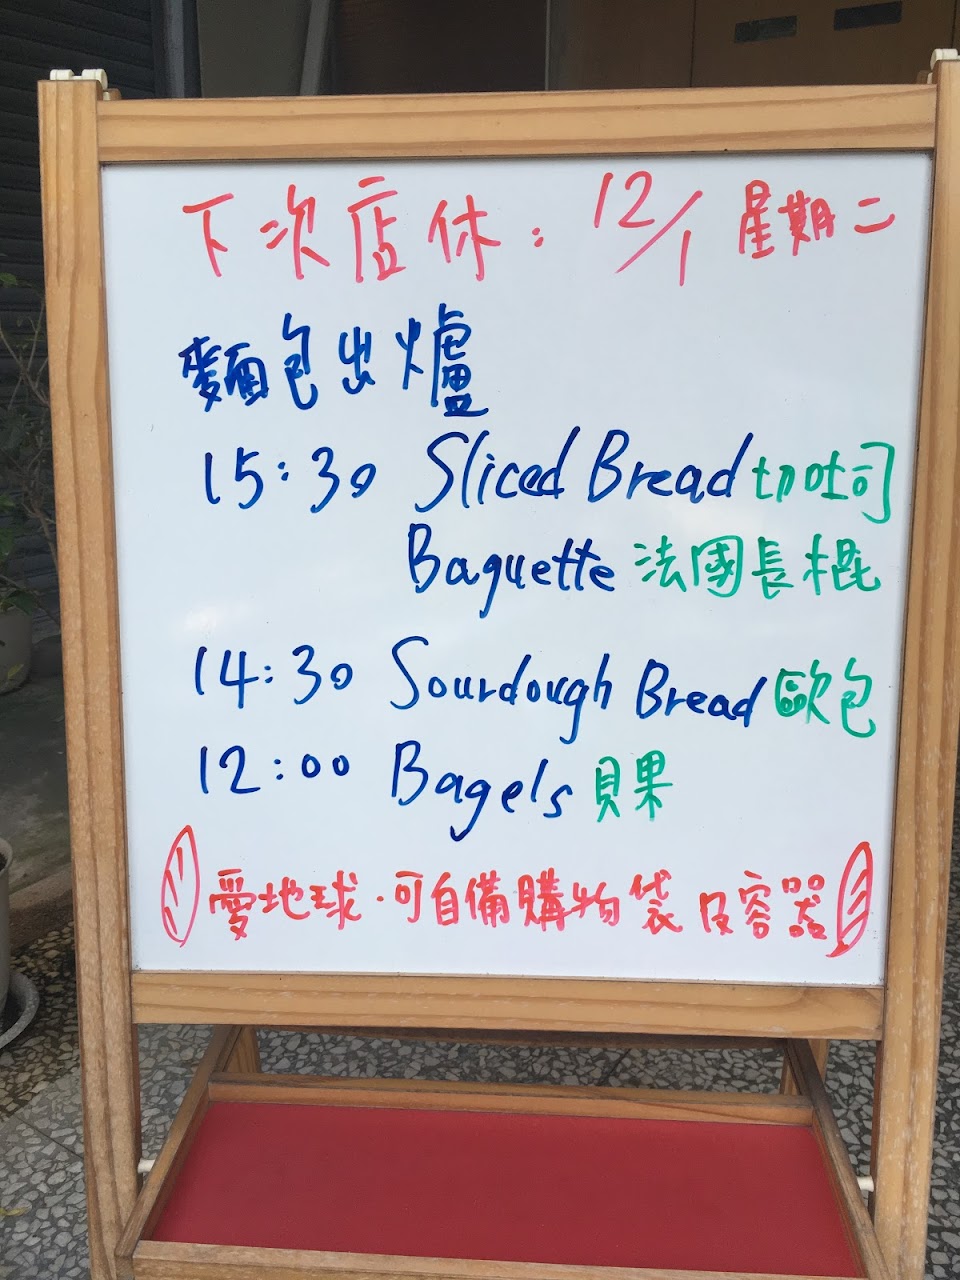 下次店休: 12/1 星期二
麵包出爐
15:30 Sliced Bread 切吐司
Baguette 法國長棍
14:30 Sourdough Bread 歐包
12:00 Bagels 貝果
愛地球·可自備購物袋及容器